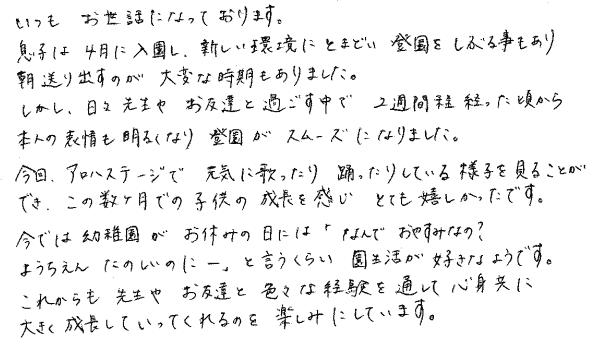 いつも お世話になっております。
息子は 4月に入園し、新しい環境にとまどい 登園をしぶる事もあり
朝送り出すのが 大変な時期もありました。
しかし、日々先生や お友達と過ごす中で 2週間程 経った頃から
本人の表情も明るくなり 登園が スムーズになりました。
今回、アロハステージで 元気に歌ったり 踊ったりしている様子を見ることが
でき、この数ヶ月での子供の成長を感じ とても嬉しかったです。
今では幼稚園が お休みの日には「なんで おやすみなの?
ようちえん たのしいのにー」と言うくらい 園生活が好きなようです。
これからも 先生や お友達と 色々な経験を通して 心身共に
大きく成長していってくれるのを 楽しみにしています。